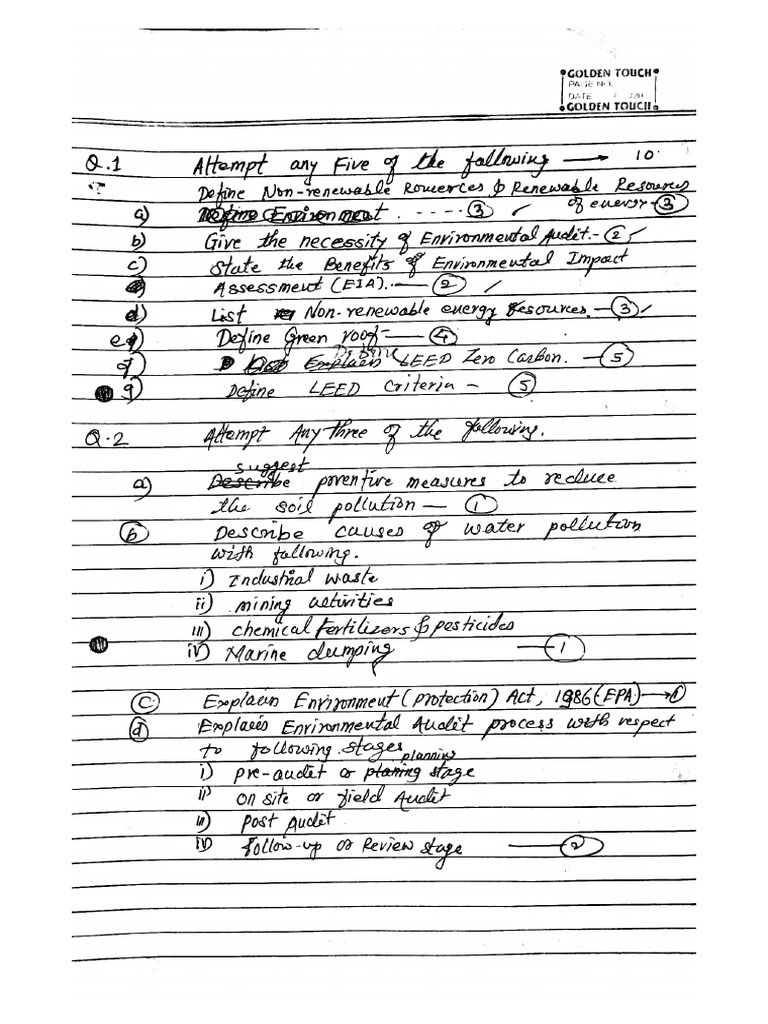 GOLDEN TOUCH
PAGE NO.
DATE
GOLDEN TOUCH
Q.1 Attempt any Five of the following → 10
Define Non-renewable Rouerces & Renewable Resources
a) Define Environment ..---- (3) ✓ of energy-(3)
b) Give the necessity of Environmental Audit.-(2)✓
c) State the Benefits of Environmental Impact
Assessment (EIA).-(2) ✓
d) List Non-renewable energy Resources.-(3)✓
e) Define Green roof-(4)
f) Define Explain LEED Zero Carbon.-(5)
g) Define LEED Criteria-(5)
Q.2 Attempt Any three of the following.
suggest
a) Describe prventive measures to reduce
the soil pollution-(1)
(b) Describe causes of water pollution
with following.
i) Industrial waste
ii) mining activities
iii) chemical Fertilizers & pesticides
iv) Marine dumping -(1)
(C) Explain Environment (protection) Act, 1986 (EPA)→(1)
(d) Explain Environmental Audit process with respect
to following stages
planning
i) pre-audit or planing stage
ii) on site or field Audit
iii) post Audit
iv) follow-up or Review stage -(2)